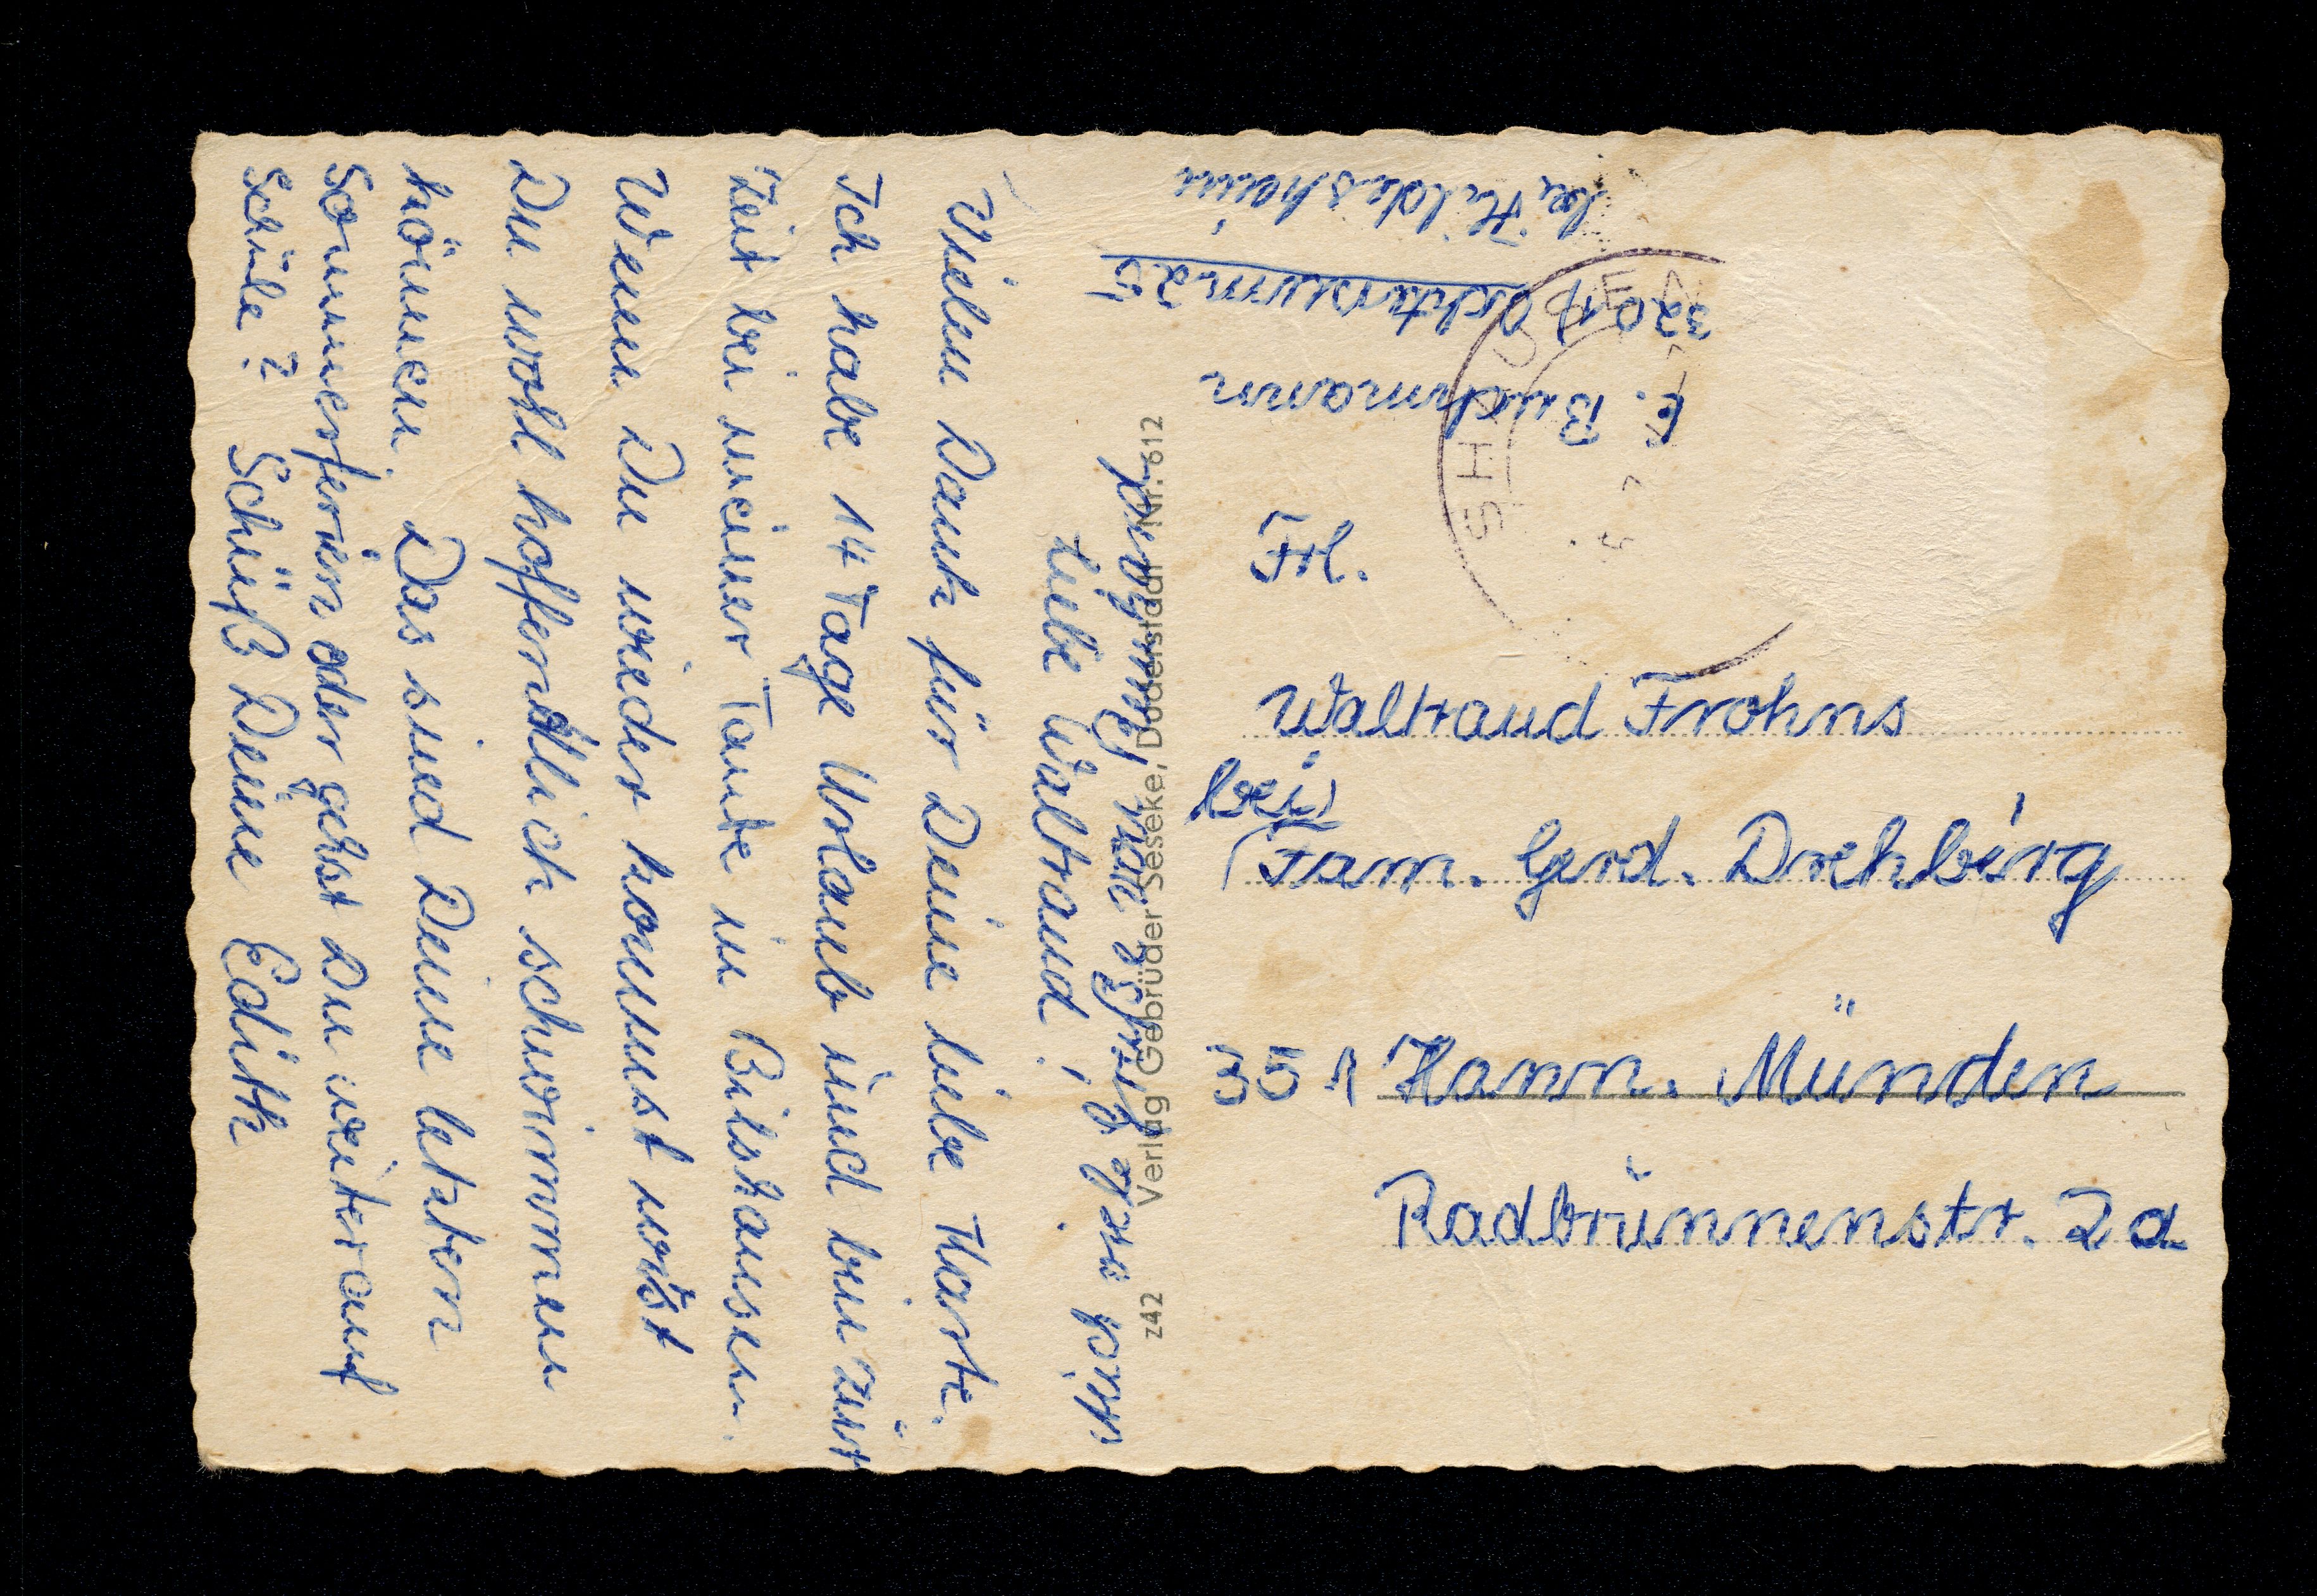 Liebe Waltraud!
Vielen Dank für Deine liebe Karte.
Ich habe 14 Tage Urlaub und bin zur
Zeit bei meiner Tante in Bilshausen.
Wenn Du wieder kommst wirst
Du wohl hoffentlich schwimmen
können. Das sind Deine letzten
Sommerferien oder gehst Du weiter auf
Schule? Tschüß Deine Edith
z42 Verlag Gebrüder Seseke, Duderstadt Nr. 612
E. Buchmann
3201 Ochtersum 25
bei Hildesheim
SHAUSEN
Frl.
Waltraud Frohns
bei
(Fam. Gerd. Drehbirg
351 Hann. Münden
Radbrunnenstr. 2a